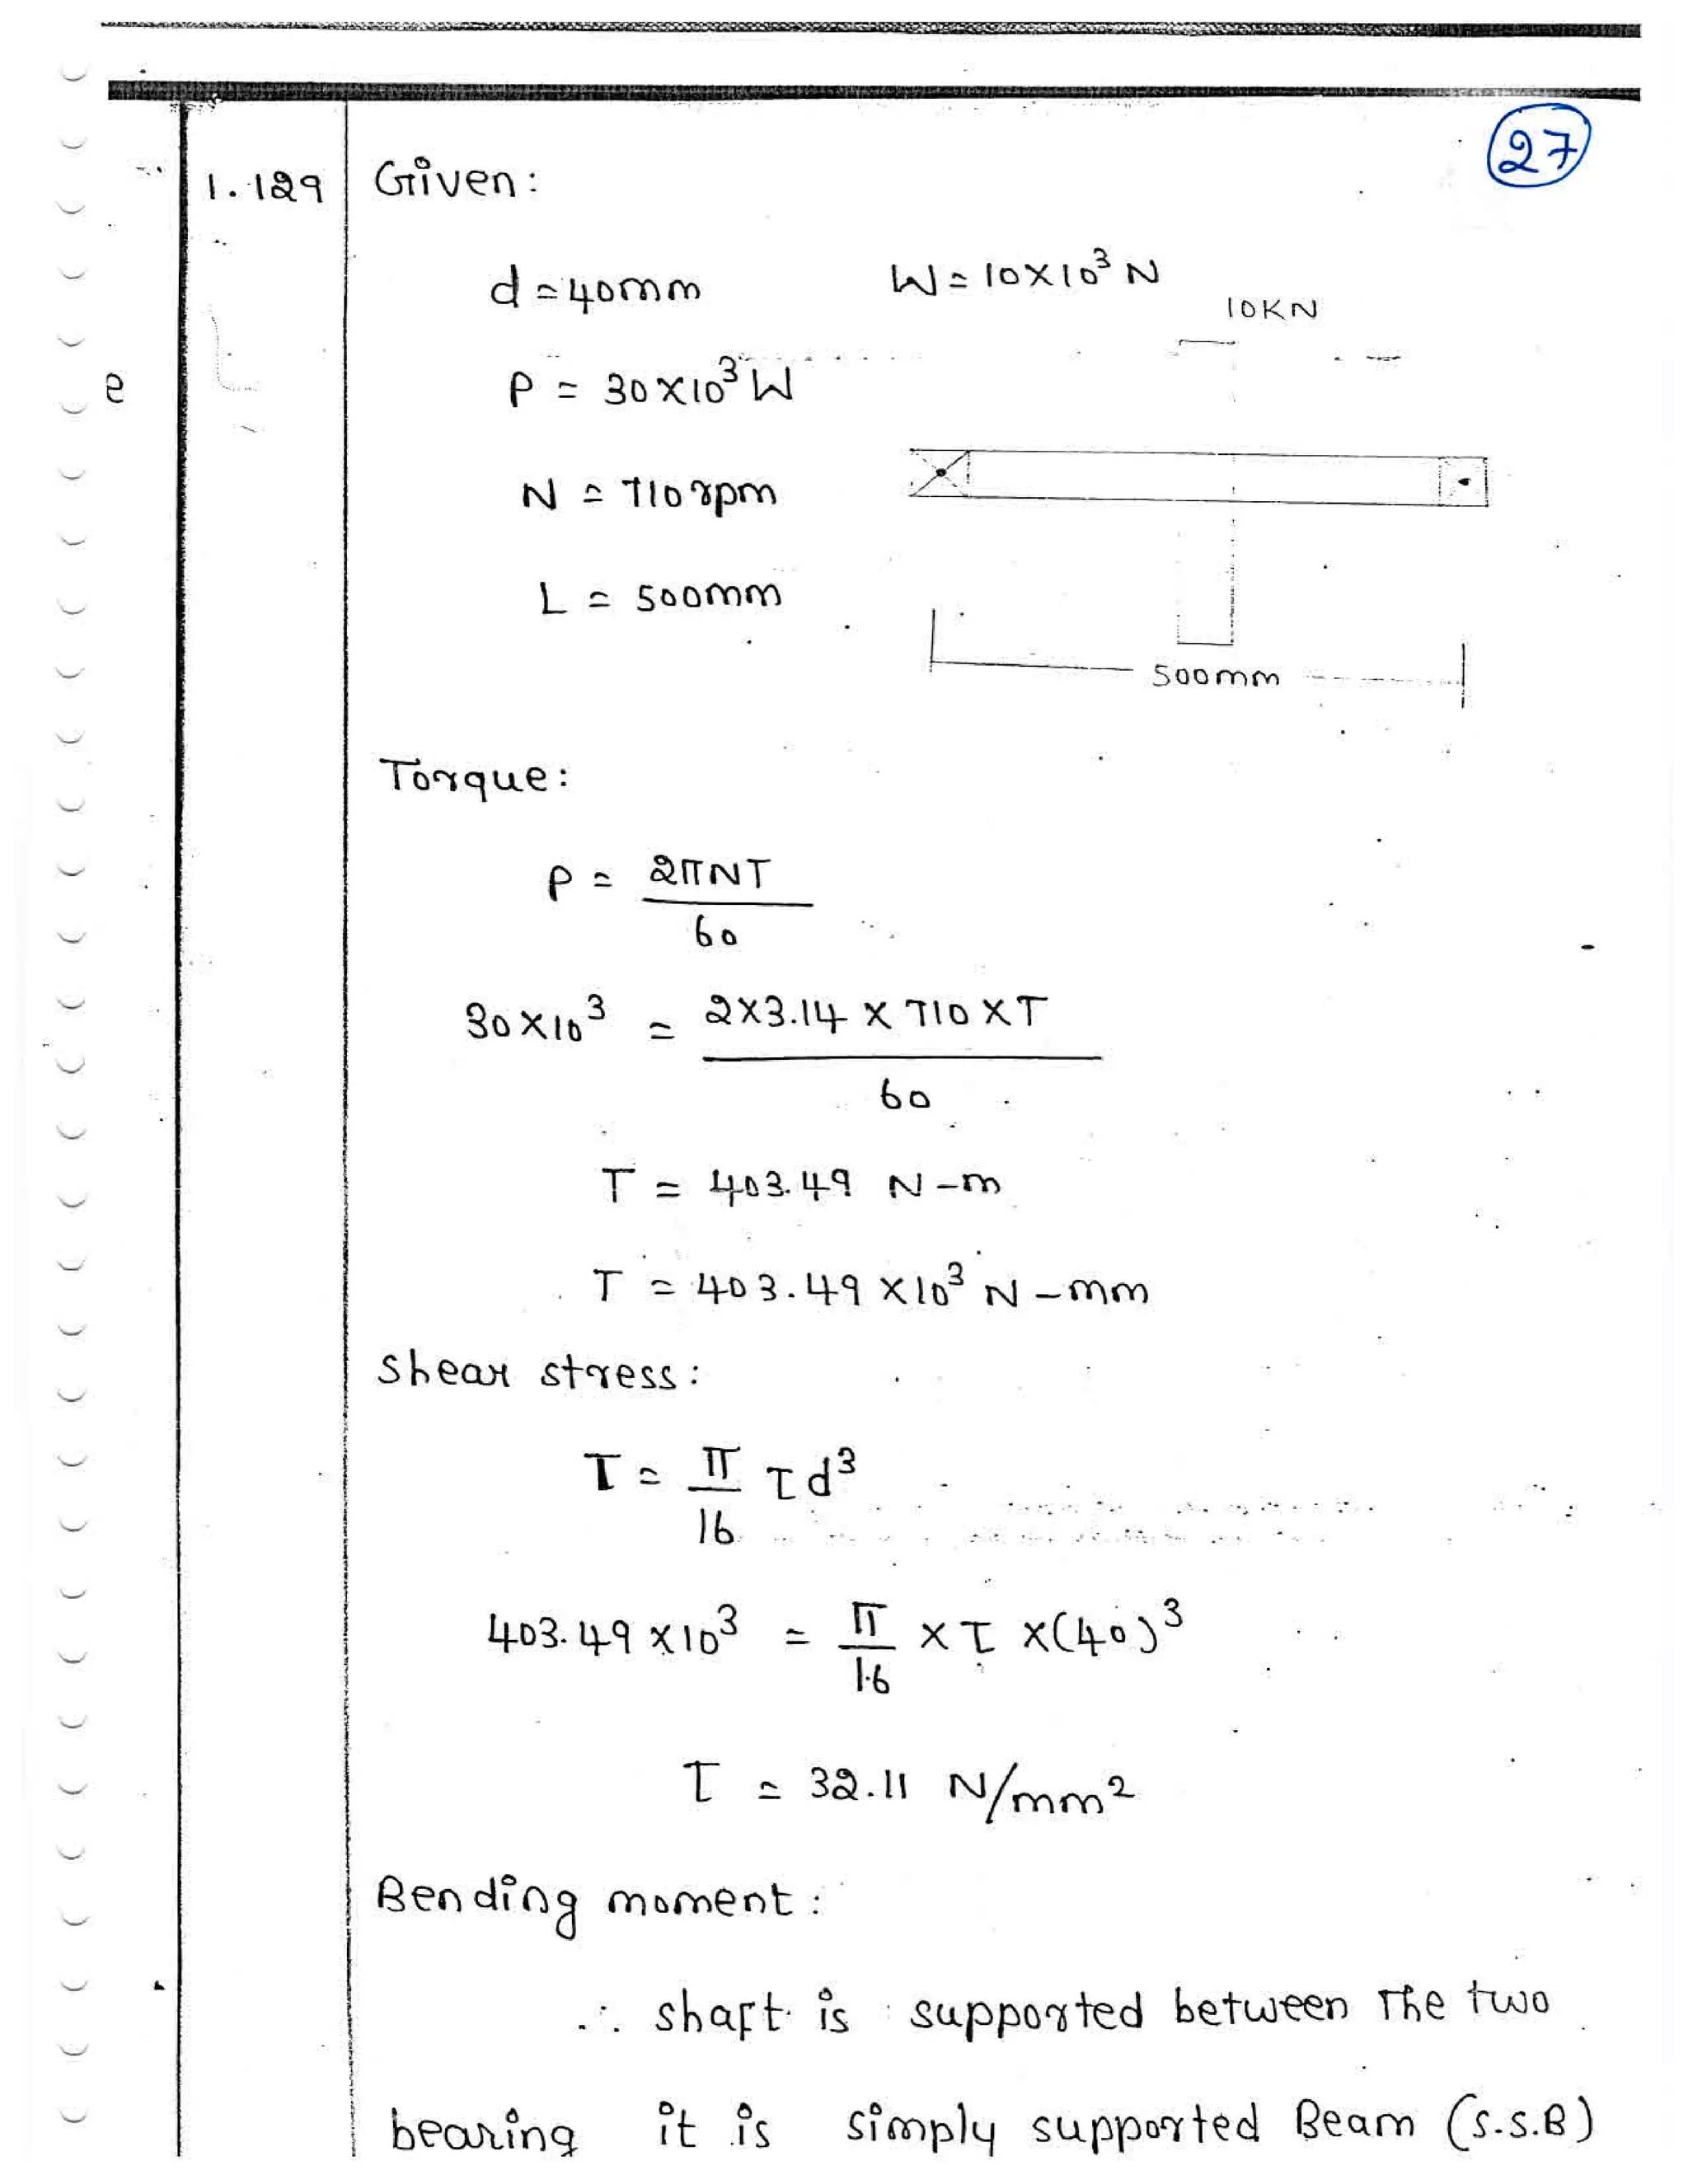 27
1.129 Given:
d = 40mm W = 10×10³ N
10KN
P = 30×10³ W
e
N = 710 rpm
L = 500mm
500mm
Torque:
P = 2πNT
60
30×10³ = 2×3.14 × 710 × T
60
T = 403.49 N-m
T = 403.49 ×10³ N-mm
Shear stress:
T = π τd³
16
403.49 ×10³ = π × τ ×(40)³
16
τ = 32.11 N/mm²
Bending moment:
∴ shaft is supported between The two
bearing it is simply supported Beam (S.S.B)